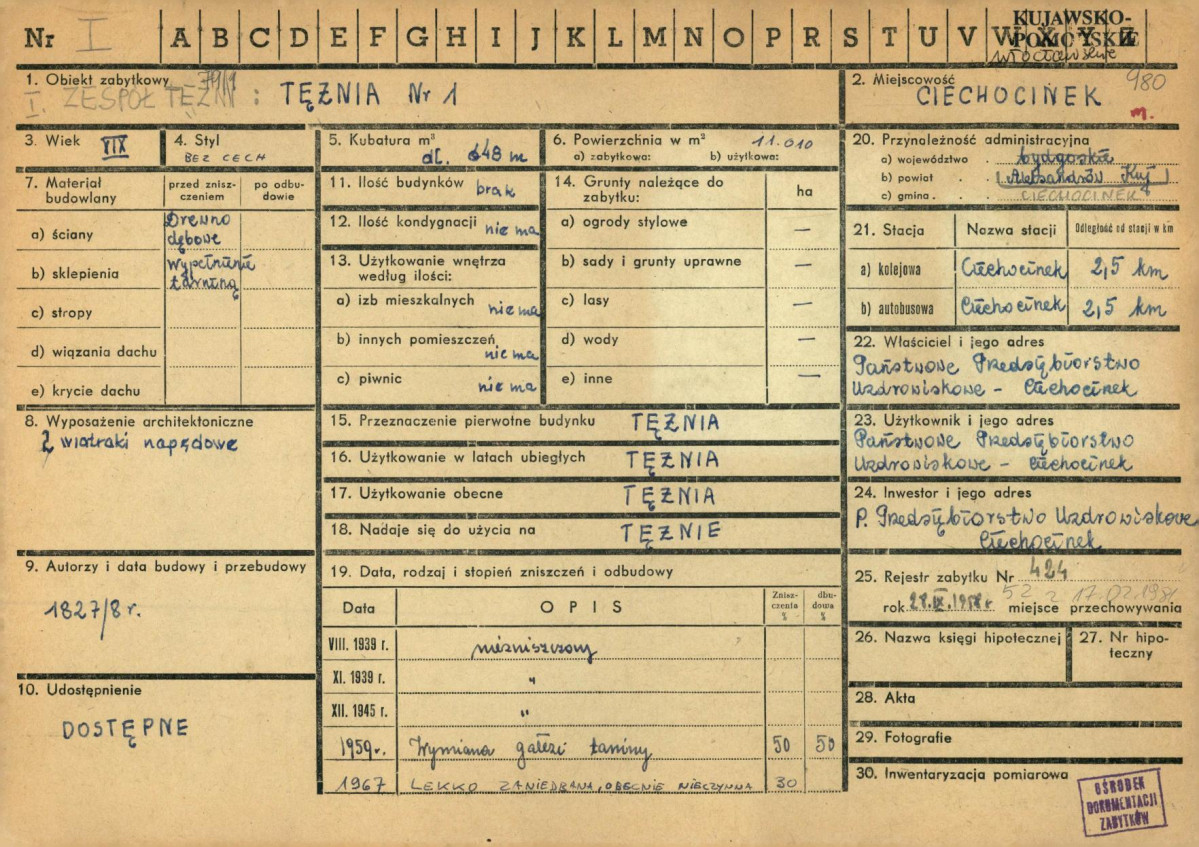 Nr I A B C D E F G H I J K L M N O P R S T U V W X Y Z
KUJAWSKO-
POMORSKIE
włocławskie
1. Obiekt zabytkowy 79/1
I. ZESPÓŁ TĘŻNI : TĘŻNIA Nr 1
2. Miejscowość 980
CIECHOCINEK
m.
3. Wiek XIX
4. Styl
BEZ CECH
5. Kubatura m³
dł. 648 m
6. Powierzchnia w m² 11.010
a) zabytkowa: b) użytkowa:
7. Materiał
budowlany
przed znisz-
czeniem
po odbu-
dowie
a) ściany
Drewno
dębowe
b) sklepienia
wypełnienie
tarniną
c) stropy
d) wiązania dachu
e) krycie dachu
8. Wyposażenie architektoniczne
2 wiatraki napędowe
9. Autorzy i data budowy i przebudowy
1827/8 r.
10. Udostępnienie
DOSTĘPNE
11. Ilość budynków brak
12. Ilość kondygnacji nie ma
13. Użytkowanie wnętrza
według ilości:
a) izb mieszkalnych nie ma
b) innych pomieszczeń
nie ma
c) piwnic nie ma
14. Grunty należące do
zabytku:
ha
a) ogrody stylowe —
b) sady i grunty uprawne —
c) lasy —
d) wody —
e) inne —
15. Przeznaczenie pierwotne budynku TĘŻNIA
16. Użytkowanie w latach ubiegłych TĘŻNIA
17. Użytkowanie obecne TĘŻNIA
18. Nadaje się do użycia na TĘŻNIE
19. Data, rodzaj i stopień zniszczeń i odbudowy
Data OPIS
Znisz-
czenia
%
dbu-
dowa
%
VIII. 1939 r. niezniszczony
XI. 1939 r. "
XII. 1945 r. "
1959 r. Wymiana gałęzi tarniny 50 50
1967 LEKKO ZANIEDBANA, OBECNIE NIECZYNNA 30
20. Przynależność administracyjna
a) województwo . bydgoskie
b) powiat . . Aleksandrów Kuj
c) gmina . . CIECHOCINEK
21. Stacja Nazwa stacji Odległość od stacji w km
a) kolejowa Ciechocinek 2,5 km
b) autobusowa Ciechocinek 2,5 km
22. Właściciel i jego adres
Państwowe Przedsiębiorstwo
Uzdrowiskowe - Ciechocinek
23. Użytkownik i jego adres
Państwowe Przedsiębiorstwo
Uzdrowiskowe - Ciechocinek
24. Inwestor i jego adres
P. Przedsiębiorstwo Uzdrowiskowe
Ciechocinek
25. Rejestr zabytku Nr 424
52 z 17.02.1981
rok 28.IX.1958r miejsce przechowywania
26. Nazwa księgi hipotecznej
27. Nr hipo-
teczny
28. Akta
29. Fotografie
30. Inwentaryzacja pomiarowa
OŚRODEK
DOKUMENTACJI
ZABYTKÓW